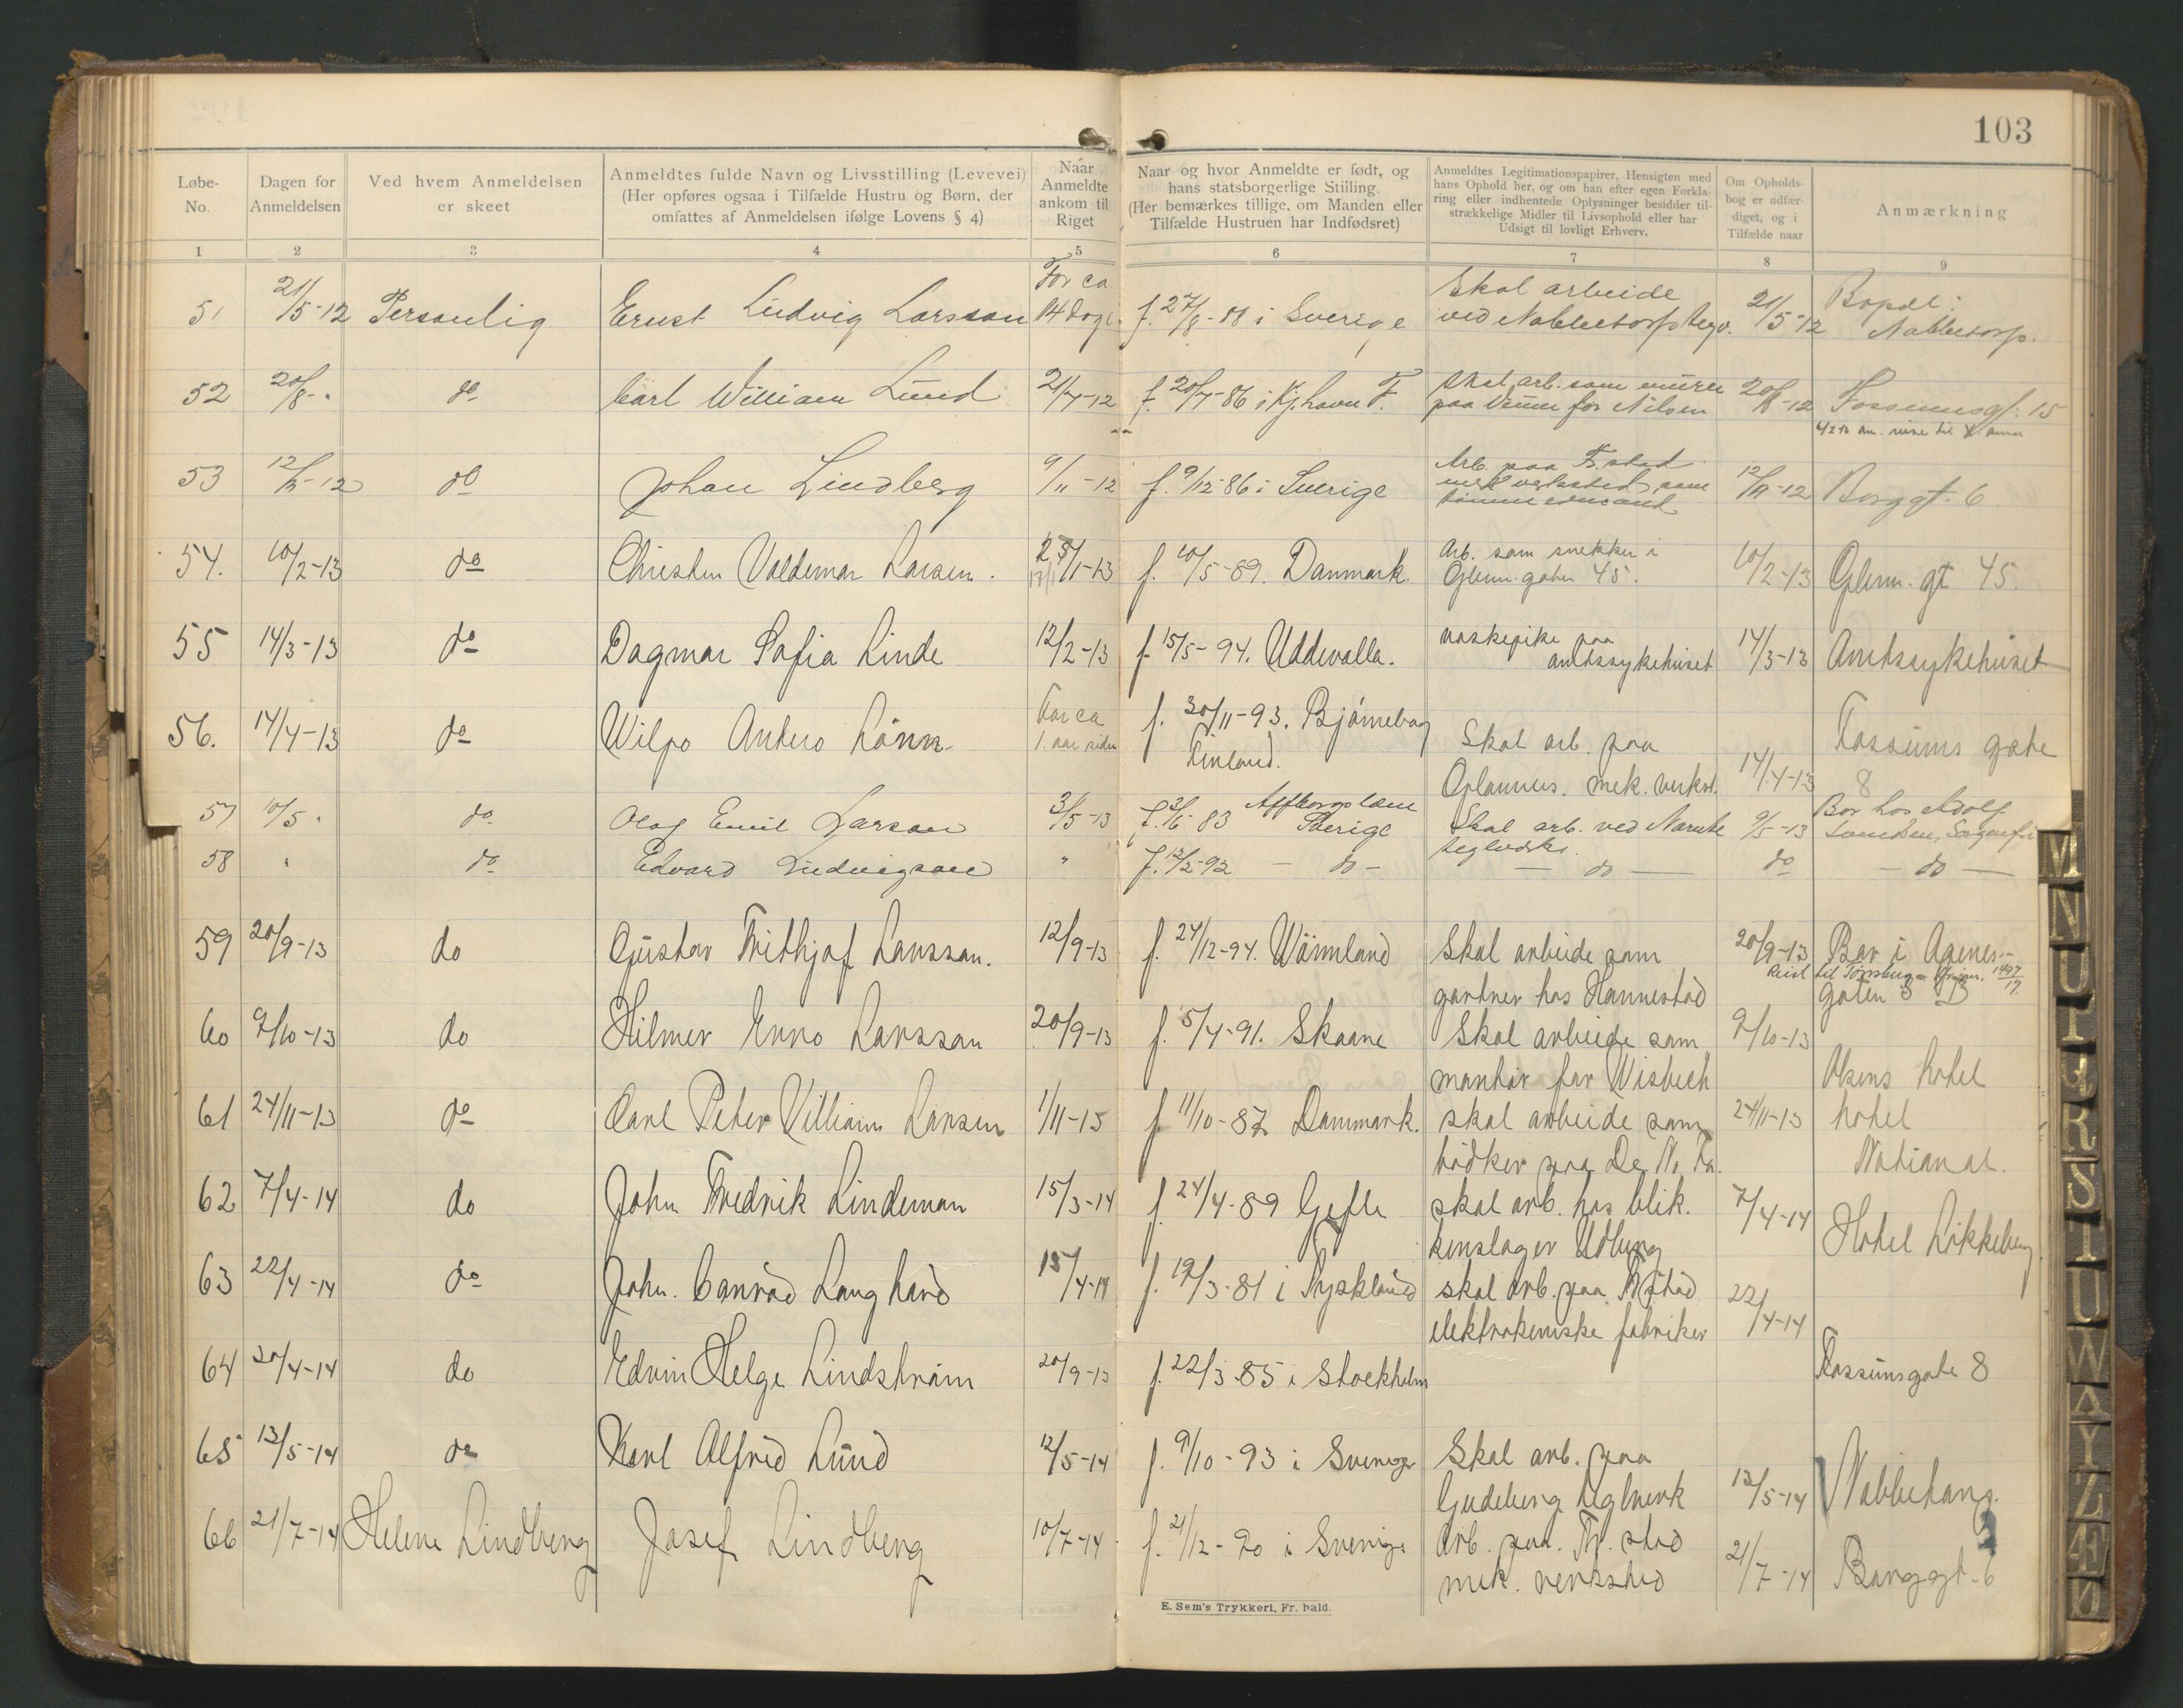 103
Løbe-No.
Dagen for Anmeldelsen
Ved hvem Anmeldelsen er skeet
Anmeldtes fulde Navn og Livsstilling (Levevei)
(Her opføres ogsaa i Tilfælde Hustru og Børn, der omfattes af Anmeldelsen ifølge Lovens § 4)
Naar Anmeldte ankom til Riget
Naar og hvor Anmeldte er født, og hans statsborgerlige Stilling.
(Her bemærkes tillige, om Manden eller i Tilfælde Hustruen har Indfødsret)
Anmeldtes Legitimationspapirer, Hensigten med hans Ophold her, og om han efter egen Forklaring eller indhentede Oplysninger besidder tilstrækkelige Midler til Livsophold eller har Udsigt til lovligt Erhverv.
Om Opholdsbog er udfærdiget, og i Tilfælde naar
Anmærkning
1 2 3 4 5 6 7 8 9
51 21/5-12 Personlig Ernst Ludvig Larsson For ca 14 dage f. 27/8-88 i Sverige Skal arbeide ved Nabbetorp tegv. 21/5-12 Bopæl: Nabbetorp.
52 20/8 do Carl William Lund 21/7-12 f. 20/7-86 i Kjøbhavn F. Skal arb. som murer paa for Nilsen 20/8-12 Fossumsgt. 15
53 12/11-12 do Johan Lindberg 9/11-12 f. 9/12-86 i Sverige Arb. paa Fr.stad mek verksted som tømmermand 12/11-12 Borggt. 6
54. 10/2-13 do Christen Valdemar Larsen. 25/1-13 f. 10/5-89. Danmark. Arb. som snekker i Glem.gaten 45. 10/2-13 Glem. gt 45.
55 14/3-13 do Dagmar Sofia Linde 12/2-13 f. 15/5-94. Uddevalla. vaskepike paa amtssykehuset 14/3-13 Amtssykehuset
56. 14/4-13 do Wilpo Antero Lönn For ca 1. aar siden f. 30/11-93. Bjørneborg Finland. Skal arb. paa mek. verkst. 14/4-13 Fossums gate 8
57 10/5 do Olaf Emil Larsson 3/5-13 f. 3/6 83 Sverige Skal arb. ved Narnte teglverk. 9/5-13 Bor hos Adolf
58 " do Edvard Ludvigsson " f. 12/2-92 - do - - do - do - do -
59 20/9-13 do Gustav Frithjof Larsson. 12/9-13 f. 24/12-94. Wärmland Skal arbeide som gartner hos Hannestad 20/9-13 Bor i Agenes-gaten 3
Reist til Tønsberg
60 9/10-13 do Hilmer Enno Larsson 20/9-13 f. 5/4-91. Skaane Skal arbeide som montør for Wisbech 9/10-13 Olsens hotel
61 24/11-13 do Carl Peter William Larsen 1/11-13 f. 11/10-87 Danmark. skal arbeide som bødker paa De No. Fa. 24/11-13 hotel National.
62 7/4-14 do John Fredrik Lindeman 15/3-14 f. 24/4-89 Gefle skal arb. hos blikkenslager Udberg 7/4-14 Hotel Løkkeberg
63 22/4-14 do John. Conrad Langhard 15/4-14 f. 19/3-81 i Tyskland skal arb. paa Fr.stad elektrokemiske fabriker 22/4-14
64 20/4-14 do Edvin Helge Lindström 20/9-13 f. 22/3-85 i Stockholm Fossumsgate 8
65 13/5-14 do Karl Alfred Lund 12/5-14 f. 9/10-93 i Sverige Skal arb. paa Gudeberg teglverk 13/5-14 Nabbehaug.
66 21/7-14 Helene Lindberg Josef Lindberg 10/7-14 f. 21/12-90 i Sverige Arb. paa. Fr. stad mek. verksted 21/7-14 Borggt. 6
E. Sem's Trykkeri, Fr. hald.
M
N
R
S
U
W
Y
Z
Æ
Ø